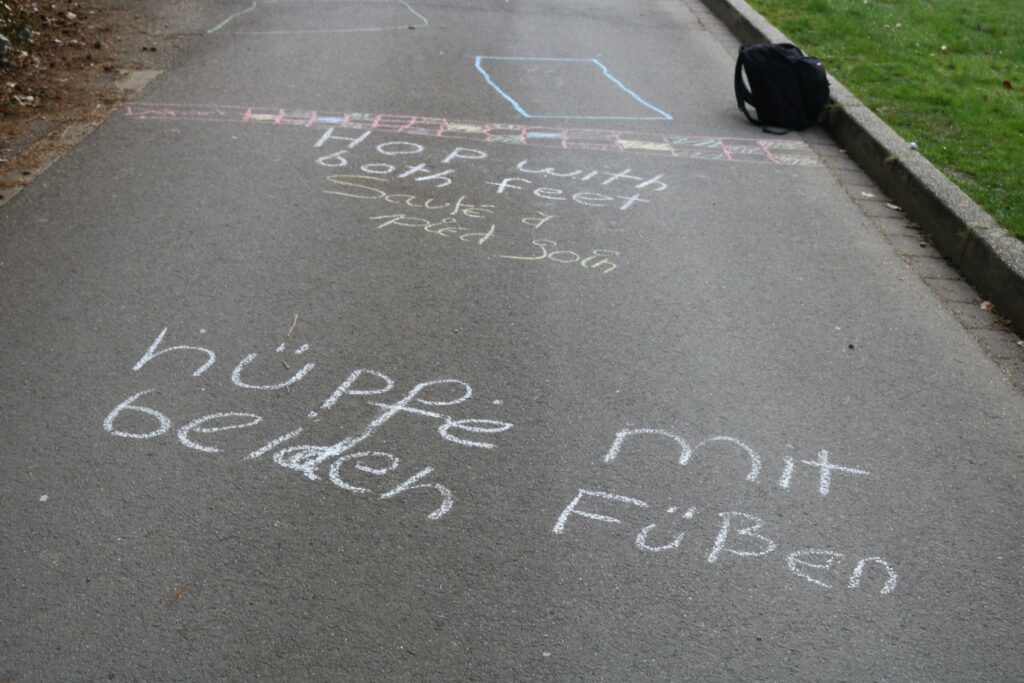 HOP with
both feet
Saute à
pied soin
hüpfe mit
beiden Füßen